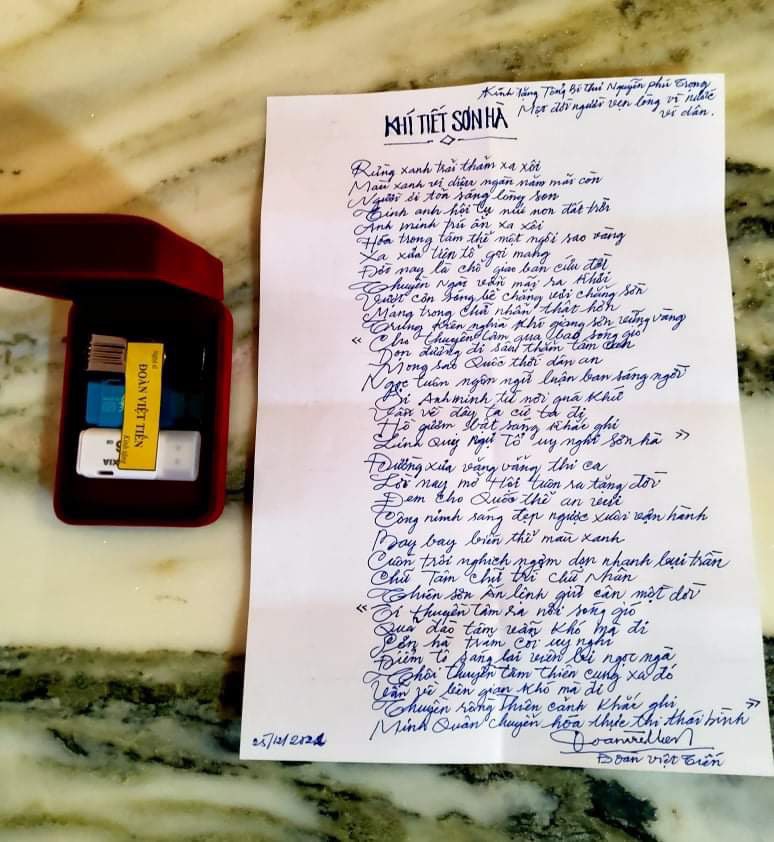 Kính tặng Tổng Bí thư Nguyễn Phú Trọng
Một đời người vẹn lòng vì nước
vì dân.
KHÍ TIẾT SƠN HÀ
Rừng xanh trải thảm xa xôi
Màu xanh vi diệu ngàn năm mãi còn
Người đi tỏa sáng lòng son
Tinh anh hội tụ núi non đất trời
Anh minh tri ân xa xôi
Hóa trong tâm thế một ngôi sao vàng
Xa xưa tiên tổ gọi mang
Đời nay là chỗ giao ban cứu đời
Thuyền Ngài vẫn mãi ra khơi
Vượt cơn sóng bể chẳng vơi chẳng sờn
Mang trong Chữ nhân thật hơn
Trung kiên nghĩa khí giang sơn vững vàng
« Chu thuyền tâm qua bao sóng gió
Dọn đường đi sâu thẳm tâm can
Mong sao Quốc thới dân an
Ngọc tuôn ngôn ngữ luận bàn sáng ngời
Bởi Anh minh từ nơi quá khứ
Vẫn về đây ta cứ ta đi
Hồ gươm bật sáng khắc ghi
Linh Quy Ngự Tổ uy nghi sơn hà »
Đường xưa văng vẳng thi ca
Lời nay mở Hội tuôn ra tặng đời
Đem cho Quốc thể an vui
Công minh sáng đẹp ngược xuôi vận hành
Bay bay biển thế màu xanh
Cuôn trôi nghịch ngợm dẹp nhanh bụi trần
Chữ Tâm chữ trí chữ Nhân
Thiên sơn Ấn linh giữ cân một đời
« Bởi thuyền tâm ra nơi sóng gió
Quả đào tâm vẫn khó mà đi
trấm coi uy nghi
Điểm tô sáng lại viên bi ngọc ngà
Thôi thuyền tâm thiên cung xa đó
Vẫn về bên gian khó mà đi
Thuyền rồng thiên cảnh khắc ghi
Minh Quân chuyển hóa thực thi thái bình »
25/12/202
Đoàn Việt Tiến
Nghệ sĩ
ĐOÀN VIỆT TIẾN
Kính tặng